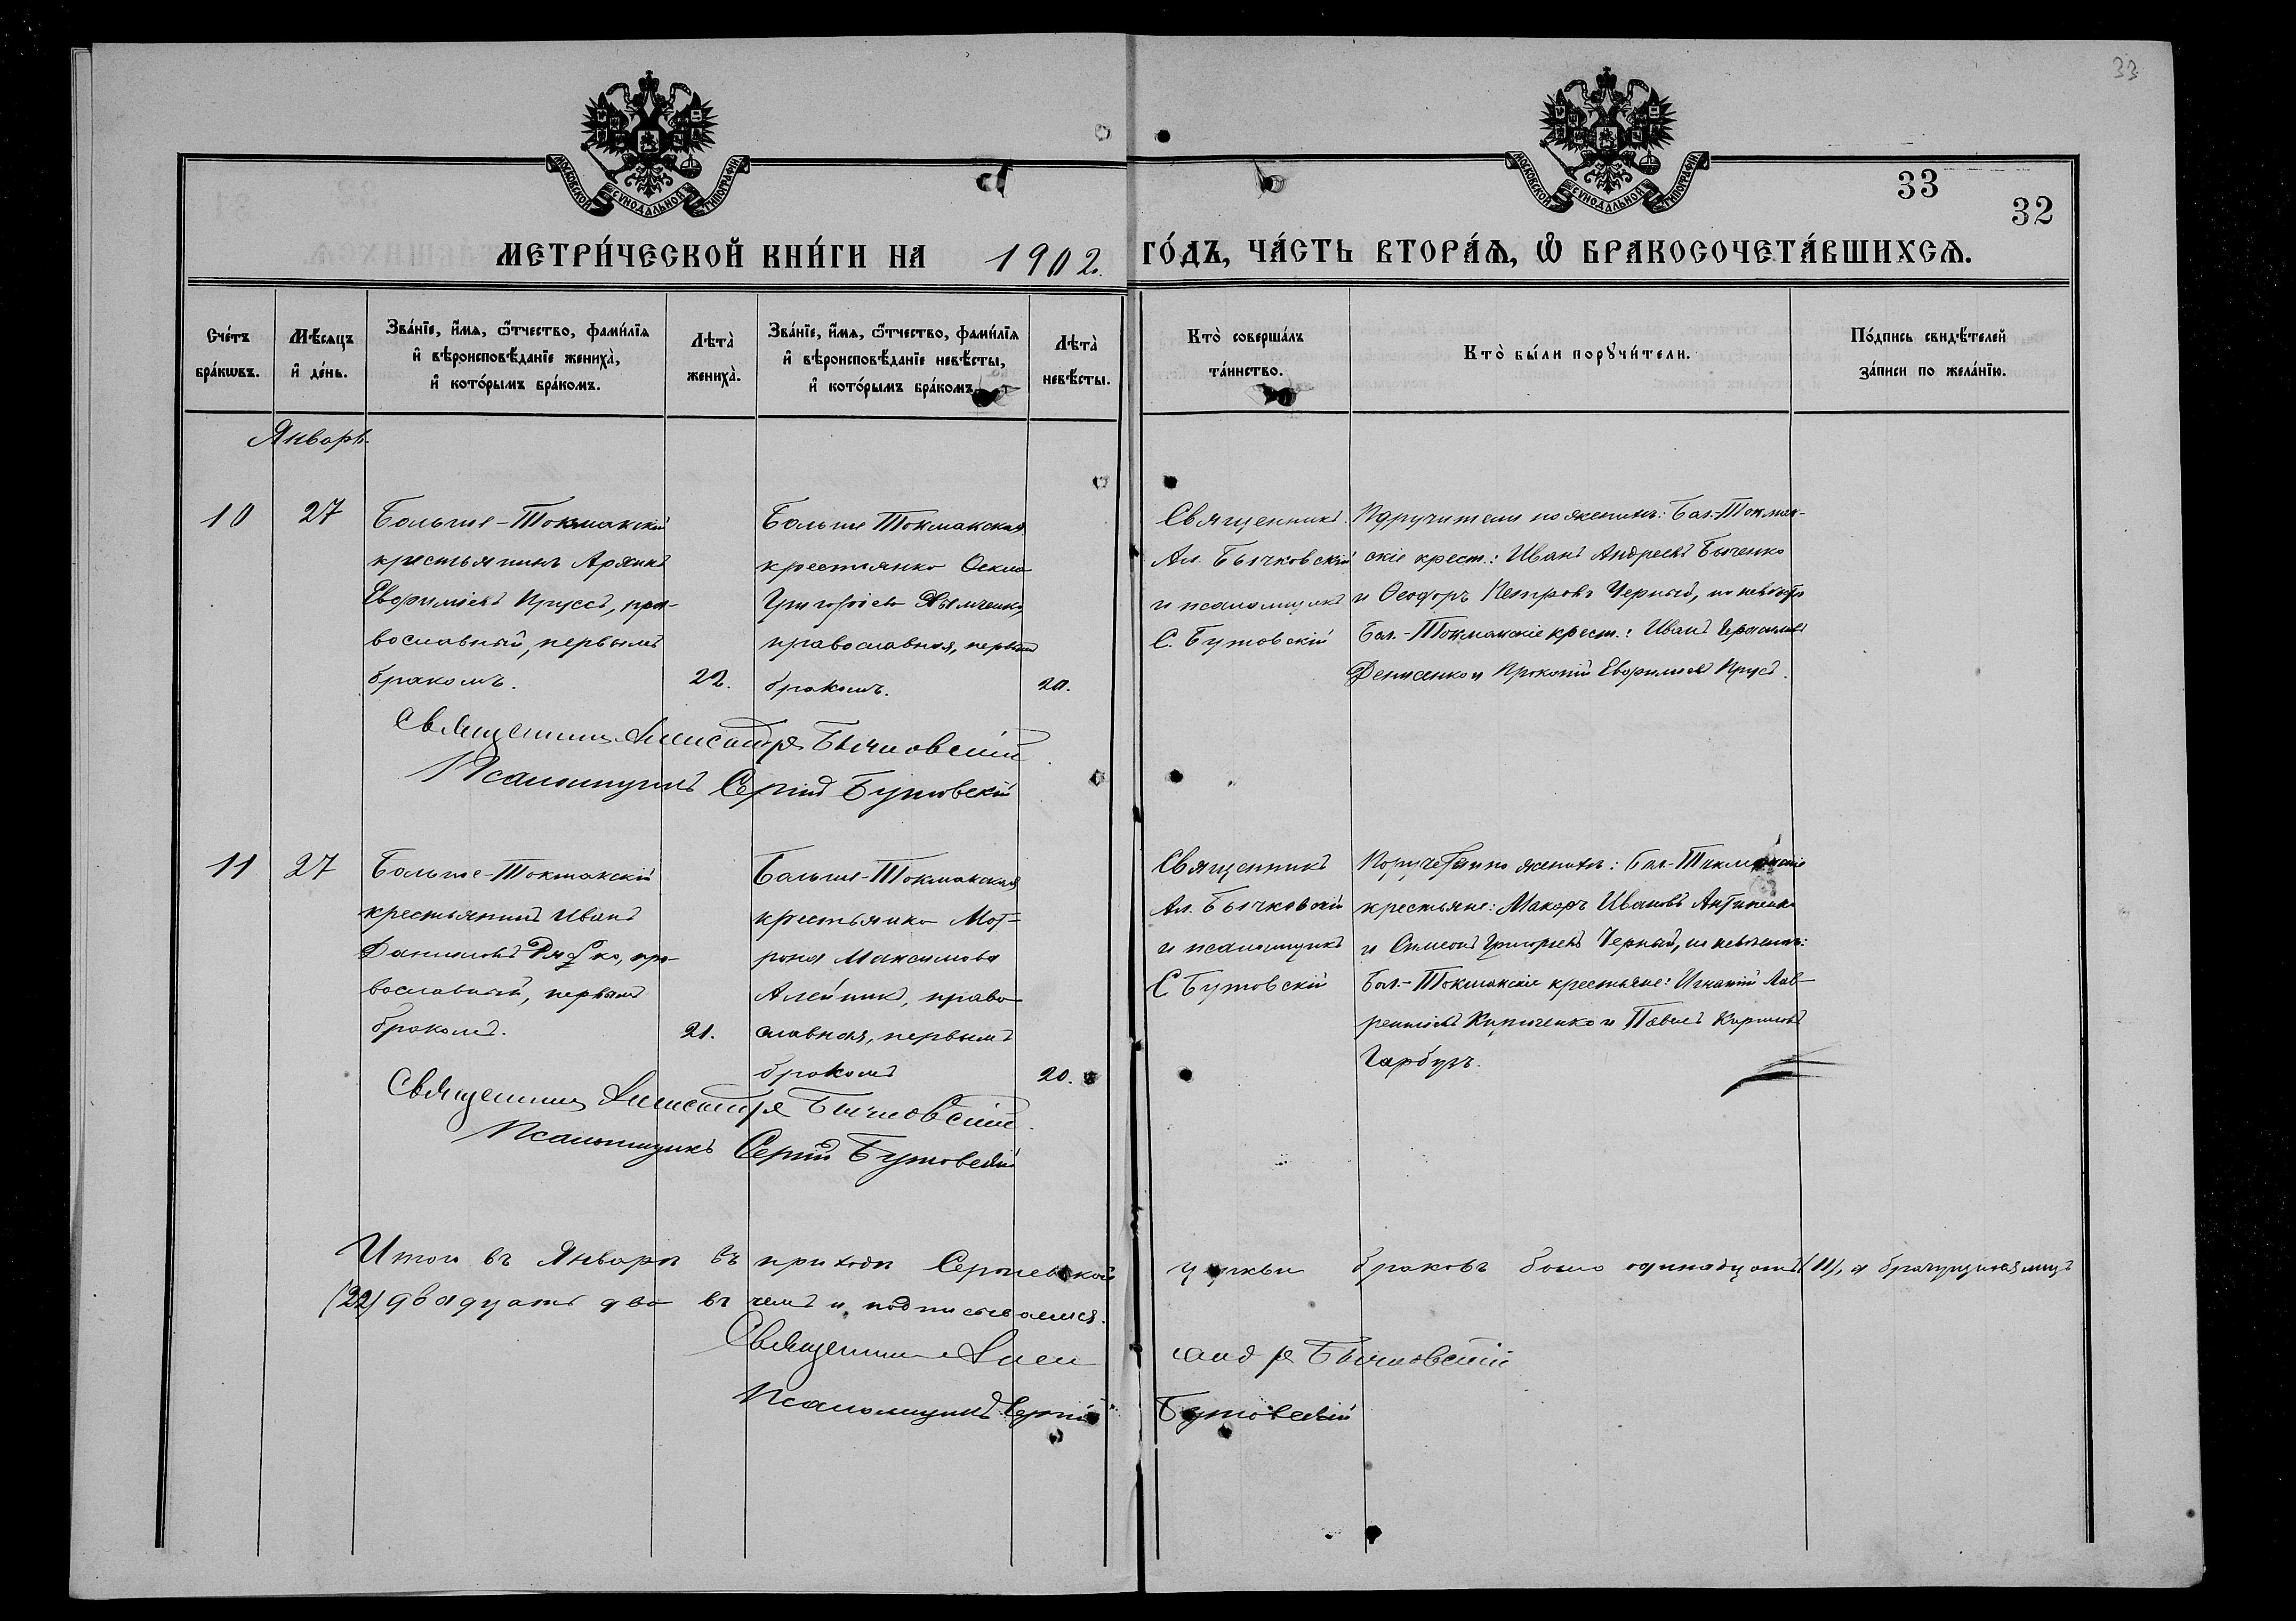 33
МОСКОВСКОЙ СУНОДАЛЬНОЙ ТИПОГРАФІИ
МОСКОВСКОЙ СУНОДАЛЬНОЙ ТИПОГРАФІИ
33
32
МЕТРИ́ЧЕСКОЙ КНИ́ГИ НА 1902. ГО́ДЪ, ЧА́СТЬ ВТОРА́Ѧ, Ѽ БРАКОСОЧЕТА́ВШИХСѦ.
Сче́тъ бра́кѡвъ.
Мѣ́сѧцъ и҆ де́нь.
Зва́нїе, и҆́мѧ, ѻ҆́тчество, фами́лїѧ
и҆ вѣроисповѣ́данїе жениха̀,
и҆ кото́рымъ бра́комъ.
Лѣта̀ жениха̀.
Зва́нїе, и҆́мѧ, ѻ҆́тчество, фами́лїѧ
и҆ вѣроисповѣ́данїе невѣ́сты,
и҆ кото́рымъ бра́комъ.
Лѣта̀ невѣ́сты.
Кто̀ соверша́лъ та́инство.
Кто̀ бы́ли порꙋчи́тели.
По́дпись свидѣ́телей
за́писи по жела́нїю.
Январь
10
27
Больше-Токмакскій
крестьянинъ
Евфиміевъ Прусъ, пра-
вославный, первымъ
бракомъ.
22.
Больше Токмакская
крестьянка
Григорьева
православная, первымъ
бракомъ.
20.
Священникъ
Ал. Бычковскій
и псаломщикъ
С. Бутовскій
Поручители по женихѣ: Бол.-Токмак-
скіе крест.: Иванъ Андреевъ Быченко
и Ѳеодоръ Петровъ Черный, по невѣстѣ
Бол.-Токмакскіе крест.: Иванъ Герасимовъ
Денисенко и Прокопій Евфиміевъ Прусъ.
Священникъ Александръ Бычковскій
Псаломщикъ Сергій Бутовскій
11
27
Больше-Токмакскій
крестьянинъ Иванъ
Даниловъ пра-
вославный, первымъ
бракомъ.
21.
Больше-Токмакская
крестьянка Мот-
рона Максимова
Алейник, право-
славная, первымъ
бракомъ
20.
Священникъ
Ал. Бычковскій
и псаломщикъ
С Бутовскій
по женихѣ: Бол.-Токмакскіе
крестьяне: Макаръ Ивановъ Антоненко
и Симеонъ Григорьевъ Черный, по невѣстѣ:
Бол.-Токмакскіе крестьяне: Игнатій Лав-
рентіевъ Кириченко и Павелъ Кириловъ
Гарбузъ.
Священникъ Александръ Бычковскій
Псаломщикъ Сергій Бутовскій
Итого въ Январѣ въ приходѣ Сергіевской церкви браковъ было одинадцать (11), а лицъ
(22) двадцать два въ чемъ и подписываемся.
Священникъ Александръ Бычковскій
Псаломщикъ Сергій Бутовскій